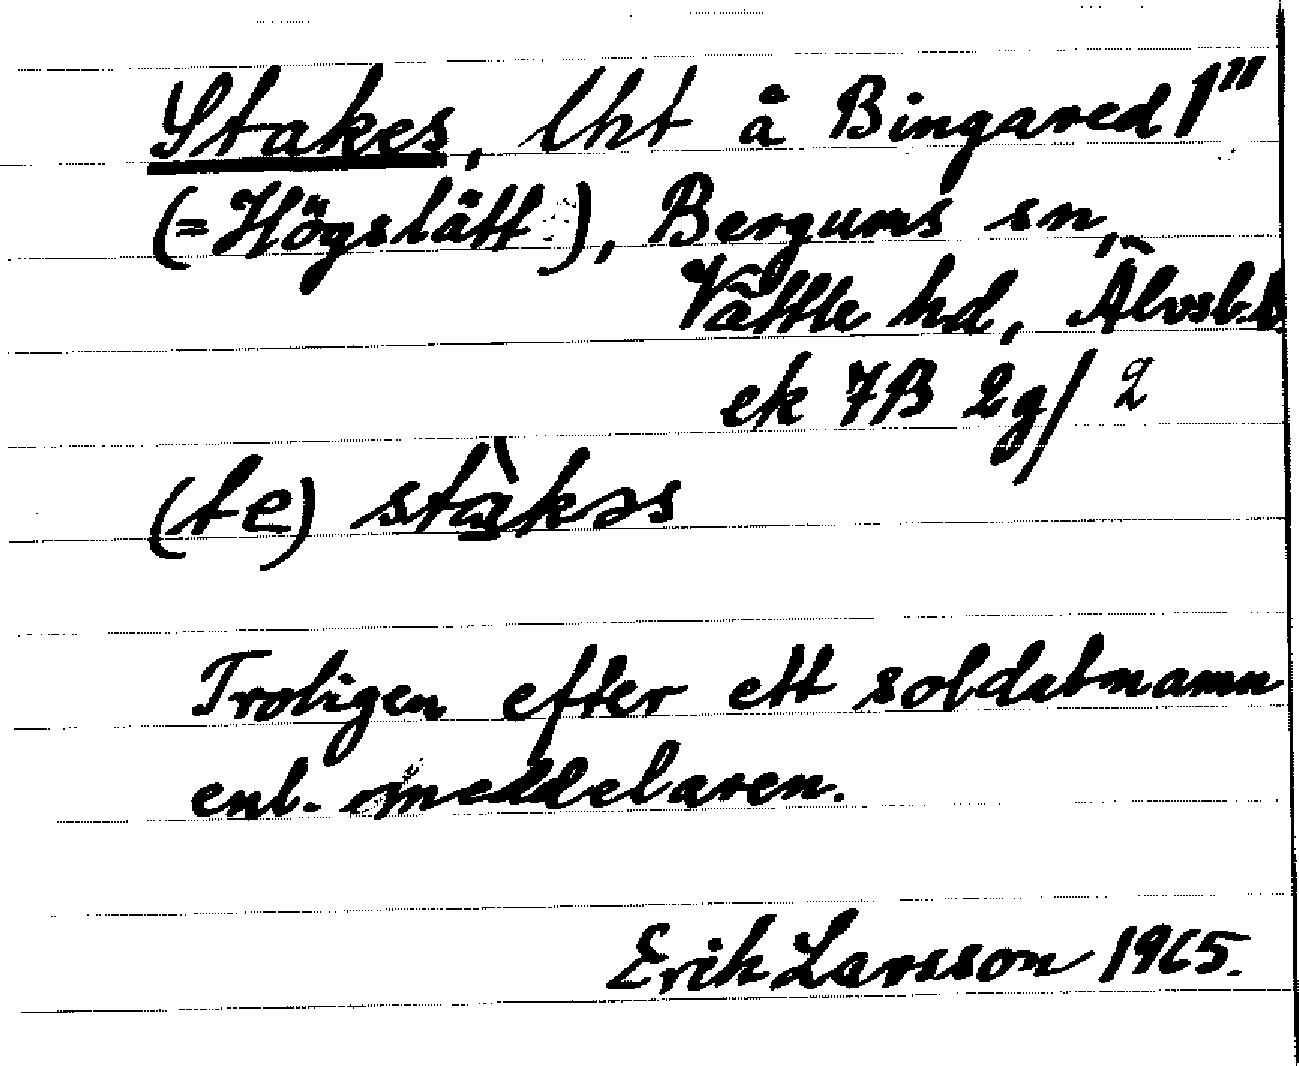 Stakes, lht å Bingared 1"
(=Högslätt), Bergums sn,
Vättle hd, Älvsb.l.
ek 7B 2g/2
(te) stàkəs
Troligen efter ett soldatnamn
enl. meddelaren.
Erik Larsson 1965.